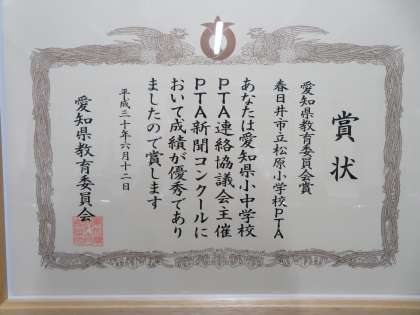 賞状
愛知県教育委員会賞
春日井市立松原小学校PTA
あなたは愛知県小中学校
PTA連絡協議会主催
PTA新聞コンクールに
おいて成績が優秀であり
ましたので賞します
平成三十年六月十二日
愛知県教育委員会